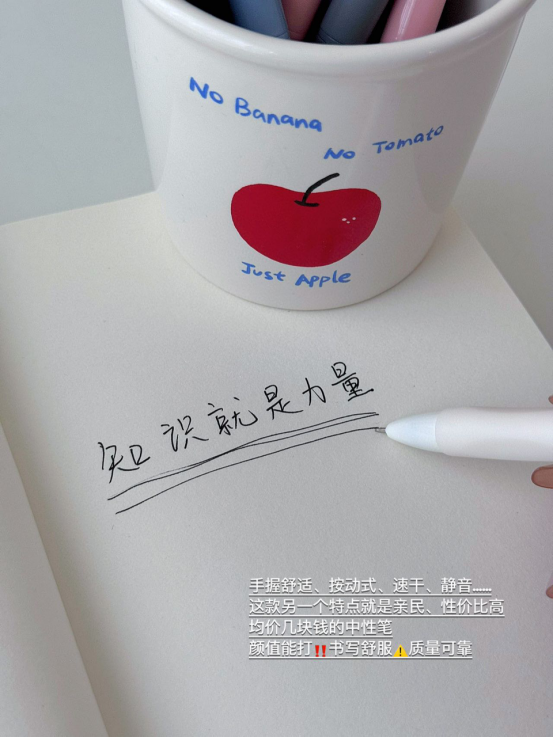 No Banana
No Tomato
Just Apple
知识就是力量
手握舒适、按动式、速干、静音……
这款另一个特点就是亲民、性价比高
均价几块钱的中性笔
颜值能打‼️书写舒服⚠️质量可靠